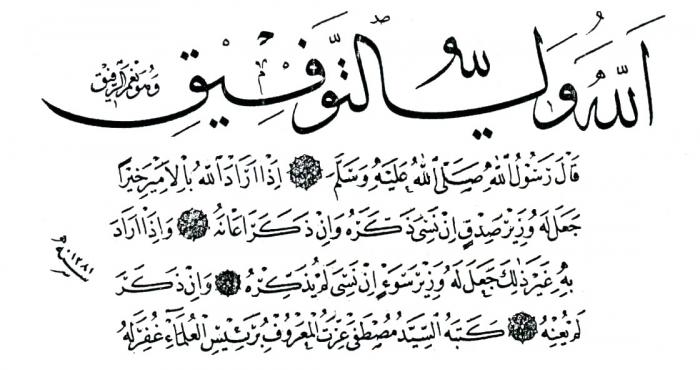 اَللّٰهُ وَلِيُّ التَّوْفِيقِ وَهُوَ نِعْمَ الرَّفِيقُ
قَالَ رَسُولُ اللّٰهِ صَلَّى اللّٰهُ عَلَيْهِ وَسَلَّمَ اِذَا اَرَادَ اللّٰهُ بِالْاَمِيرِ خَيْرًا
جَعَلَ لَهُ وَزِيرَ صِدْقٍ اِنْ نَسِيَ ذَكَّرَهُ وَاِنْ ذَكَرَ اَعَانَهُ وَاِذَا اَرَادَ
بِهِ غَيْرَ ذٰلِكَ جَعَلَ لَهُ وَزِيرَ سُوءٍ اِنْ نَسِيَ لَمْ يُذَكِّرْهُ وَاِنْ ذَكَرَ
لَمْ يُعِنْهُ كَتَبَهُ السَّيِّدُ مُصْطَفٰى عِزَّتْ الْمَعْرُوفُ بِرَئِيسِ الْعُلَمَاءِ غُفِرَ لَهُ
سنه ١٢٨١